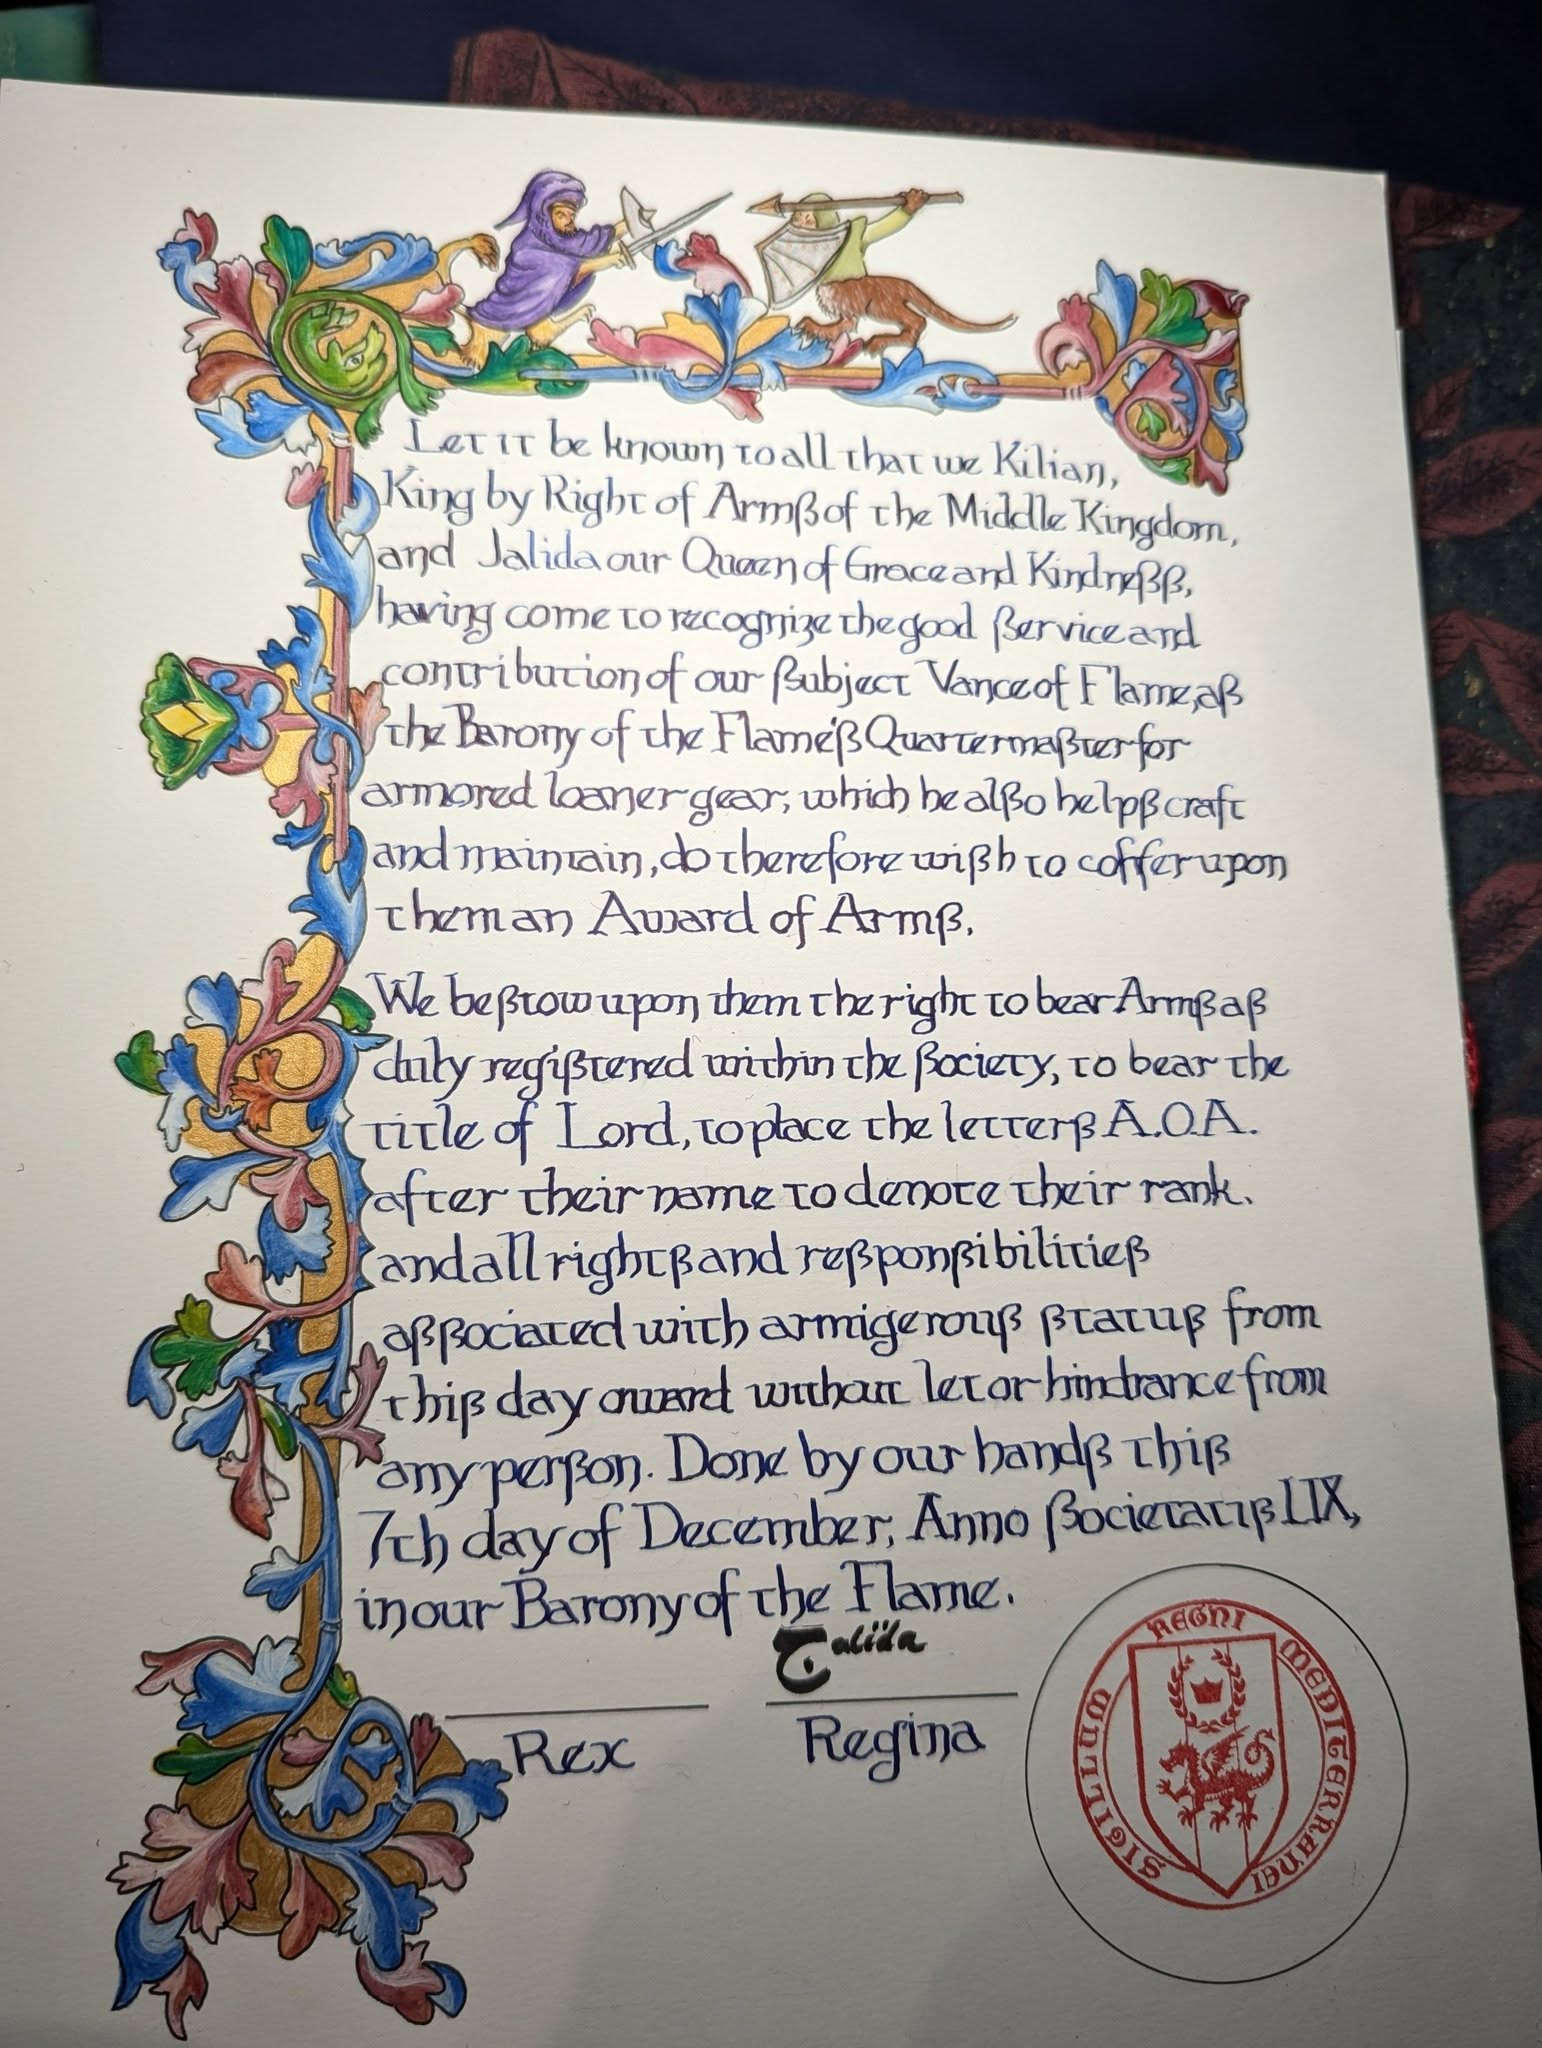 Let it be known to all that we Kilian,
King by Right of Arms of the Middle Kingdom,
and Jalida our Queen of Grace and Kindness,
having come to recognize the good service and
contribution of our subject Vance of Flame, as
the Barony of the Flame's Quartermaster for
armored loaner gear, which he also helps craft
and maintain, do therefore wish to coffer upon
them an Award of Arms.
We bestow upon them the right to bear Arms as
duly registered within the Society, to bear the
title of Lord, to place the letters A.O.A.
after their name to denote their rank.
and all rights and responsibilities
associated with armigerous status from
this day onward without let or hindrance from
any person. Done by our hands this
7th day of December, Anno Societatis LIX,
in our Barony of the Flame.
Jalida
Rex
Regina
SIGILLUM REGNI MEDITERRANEI